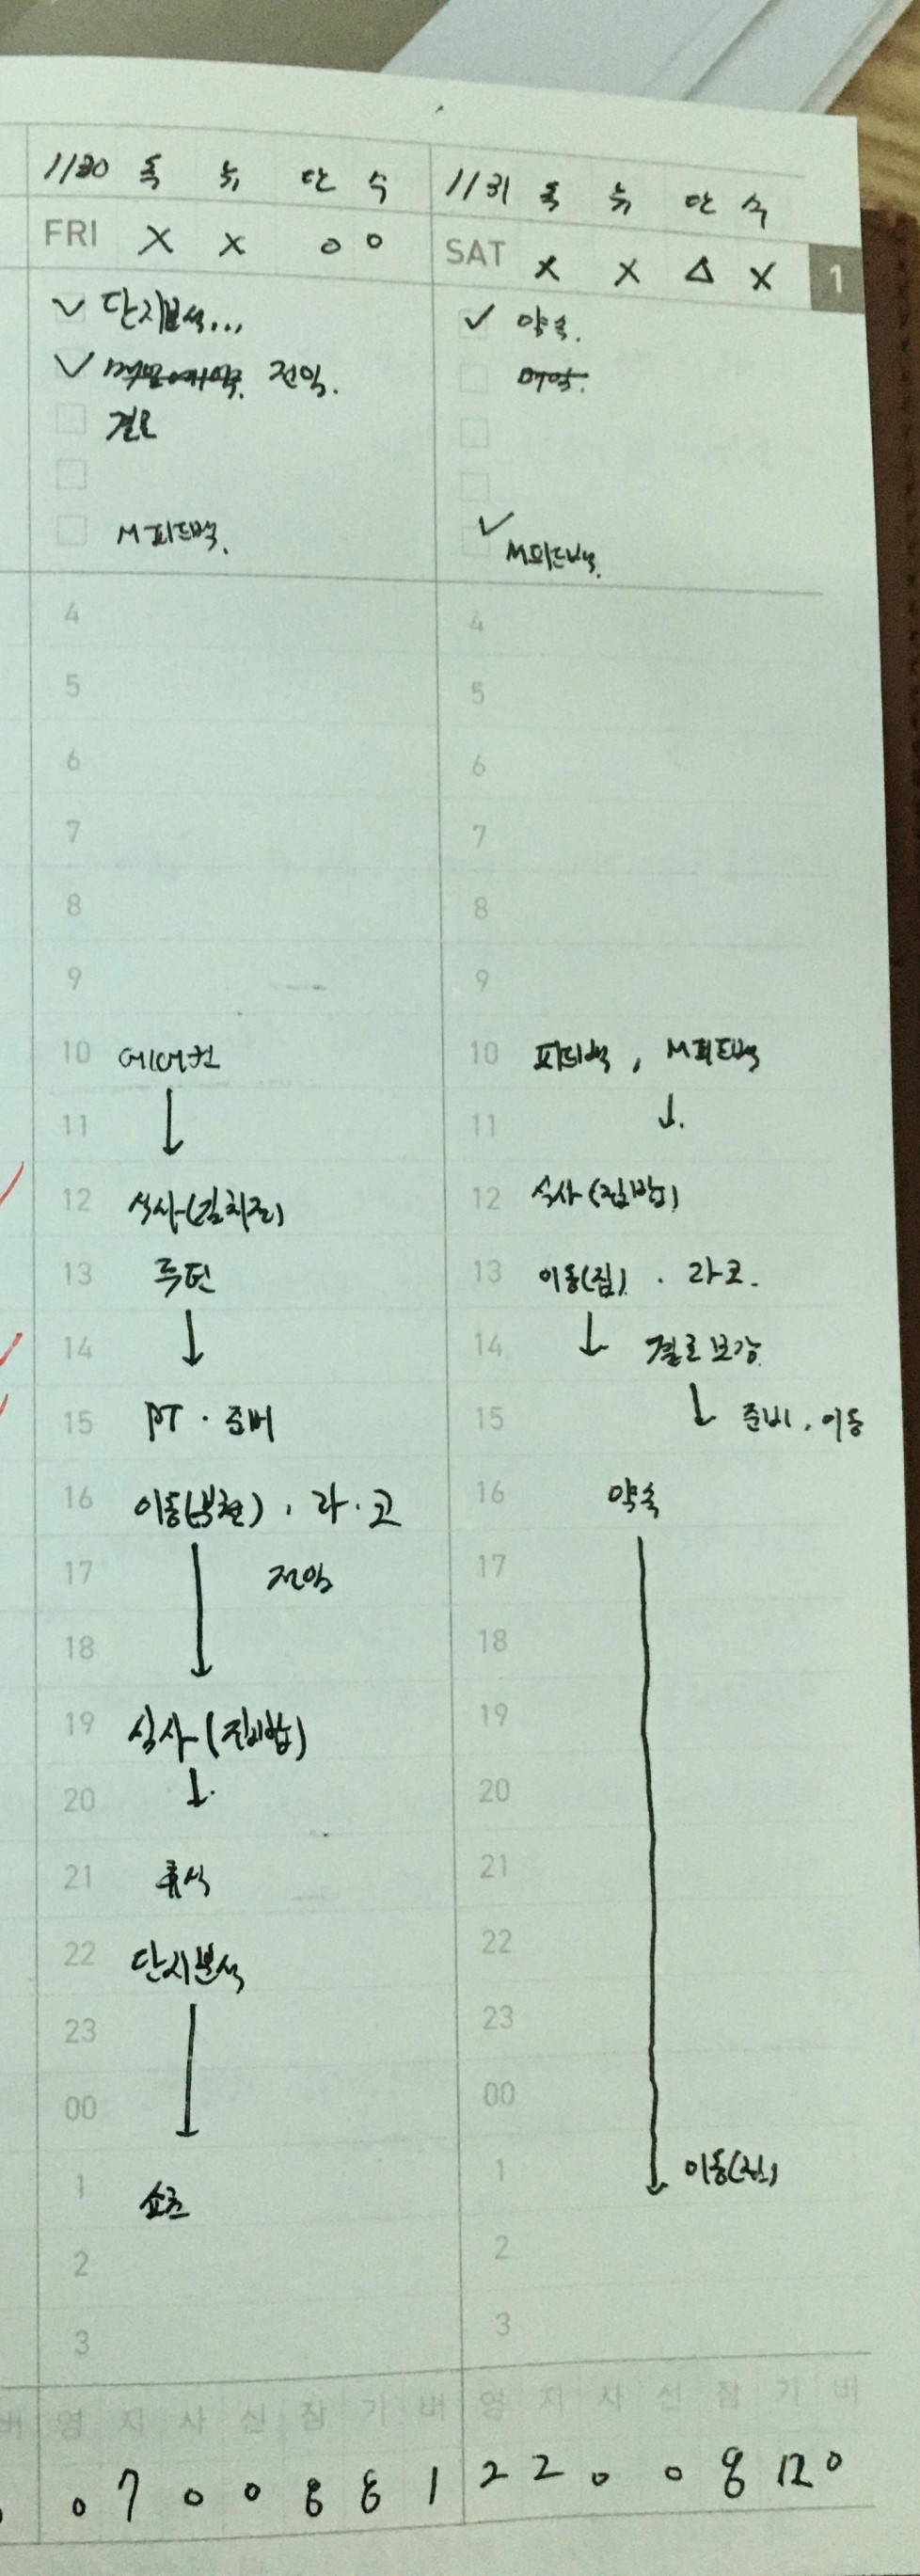 1/30 독 뉴 단 수
FRI X X o o
단지분석...
전익.
결로
M피드백.
4
5
6
7
8
9
10 에어컨
11
12 식사(김치찜)
13 루틴
14
15 PT · 준비
16 이동(부천) · 라·고
17 전익
18
19 식사(집밥)
20
21 휴식
22 단지분석
23
00
1 쇼츠
2
3
영 지 사 신 잠 기 버
0 7 0 0 8 8 1
1/31 독 뉴 단 수
SAT X X △ X 1
약속.
M피드백.
4
5
6
7
8
9
10 피드백, M피드백
11
12 식사(집밥)
13 이동(집) · 라코.
14 결로보강
15 준비, 이동
16 약속
17
18
19
20
21
22
23
00
1 이동(집)
2
3
영 지 사 신 잠 기 버
2 2 0 0 8 12 0